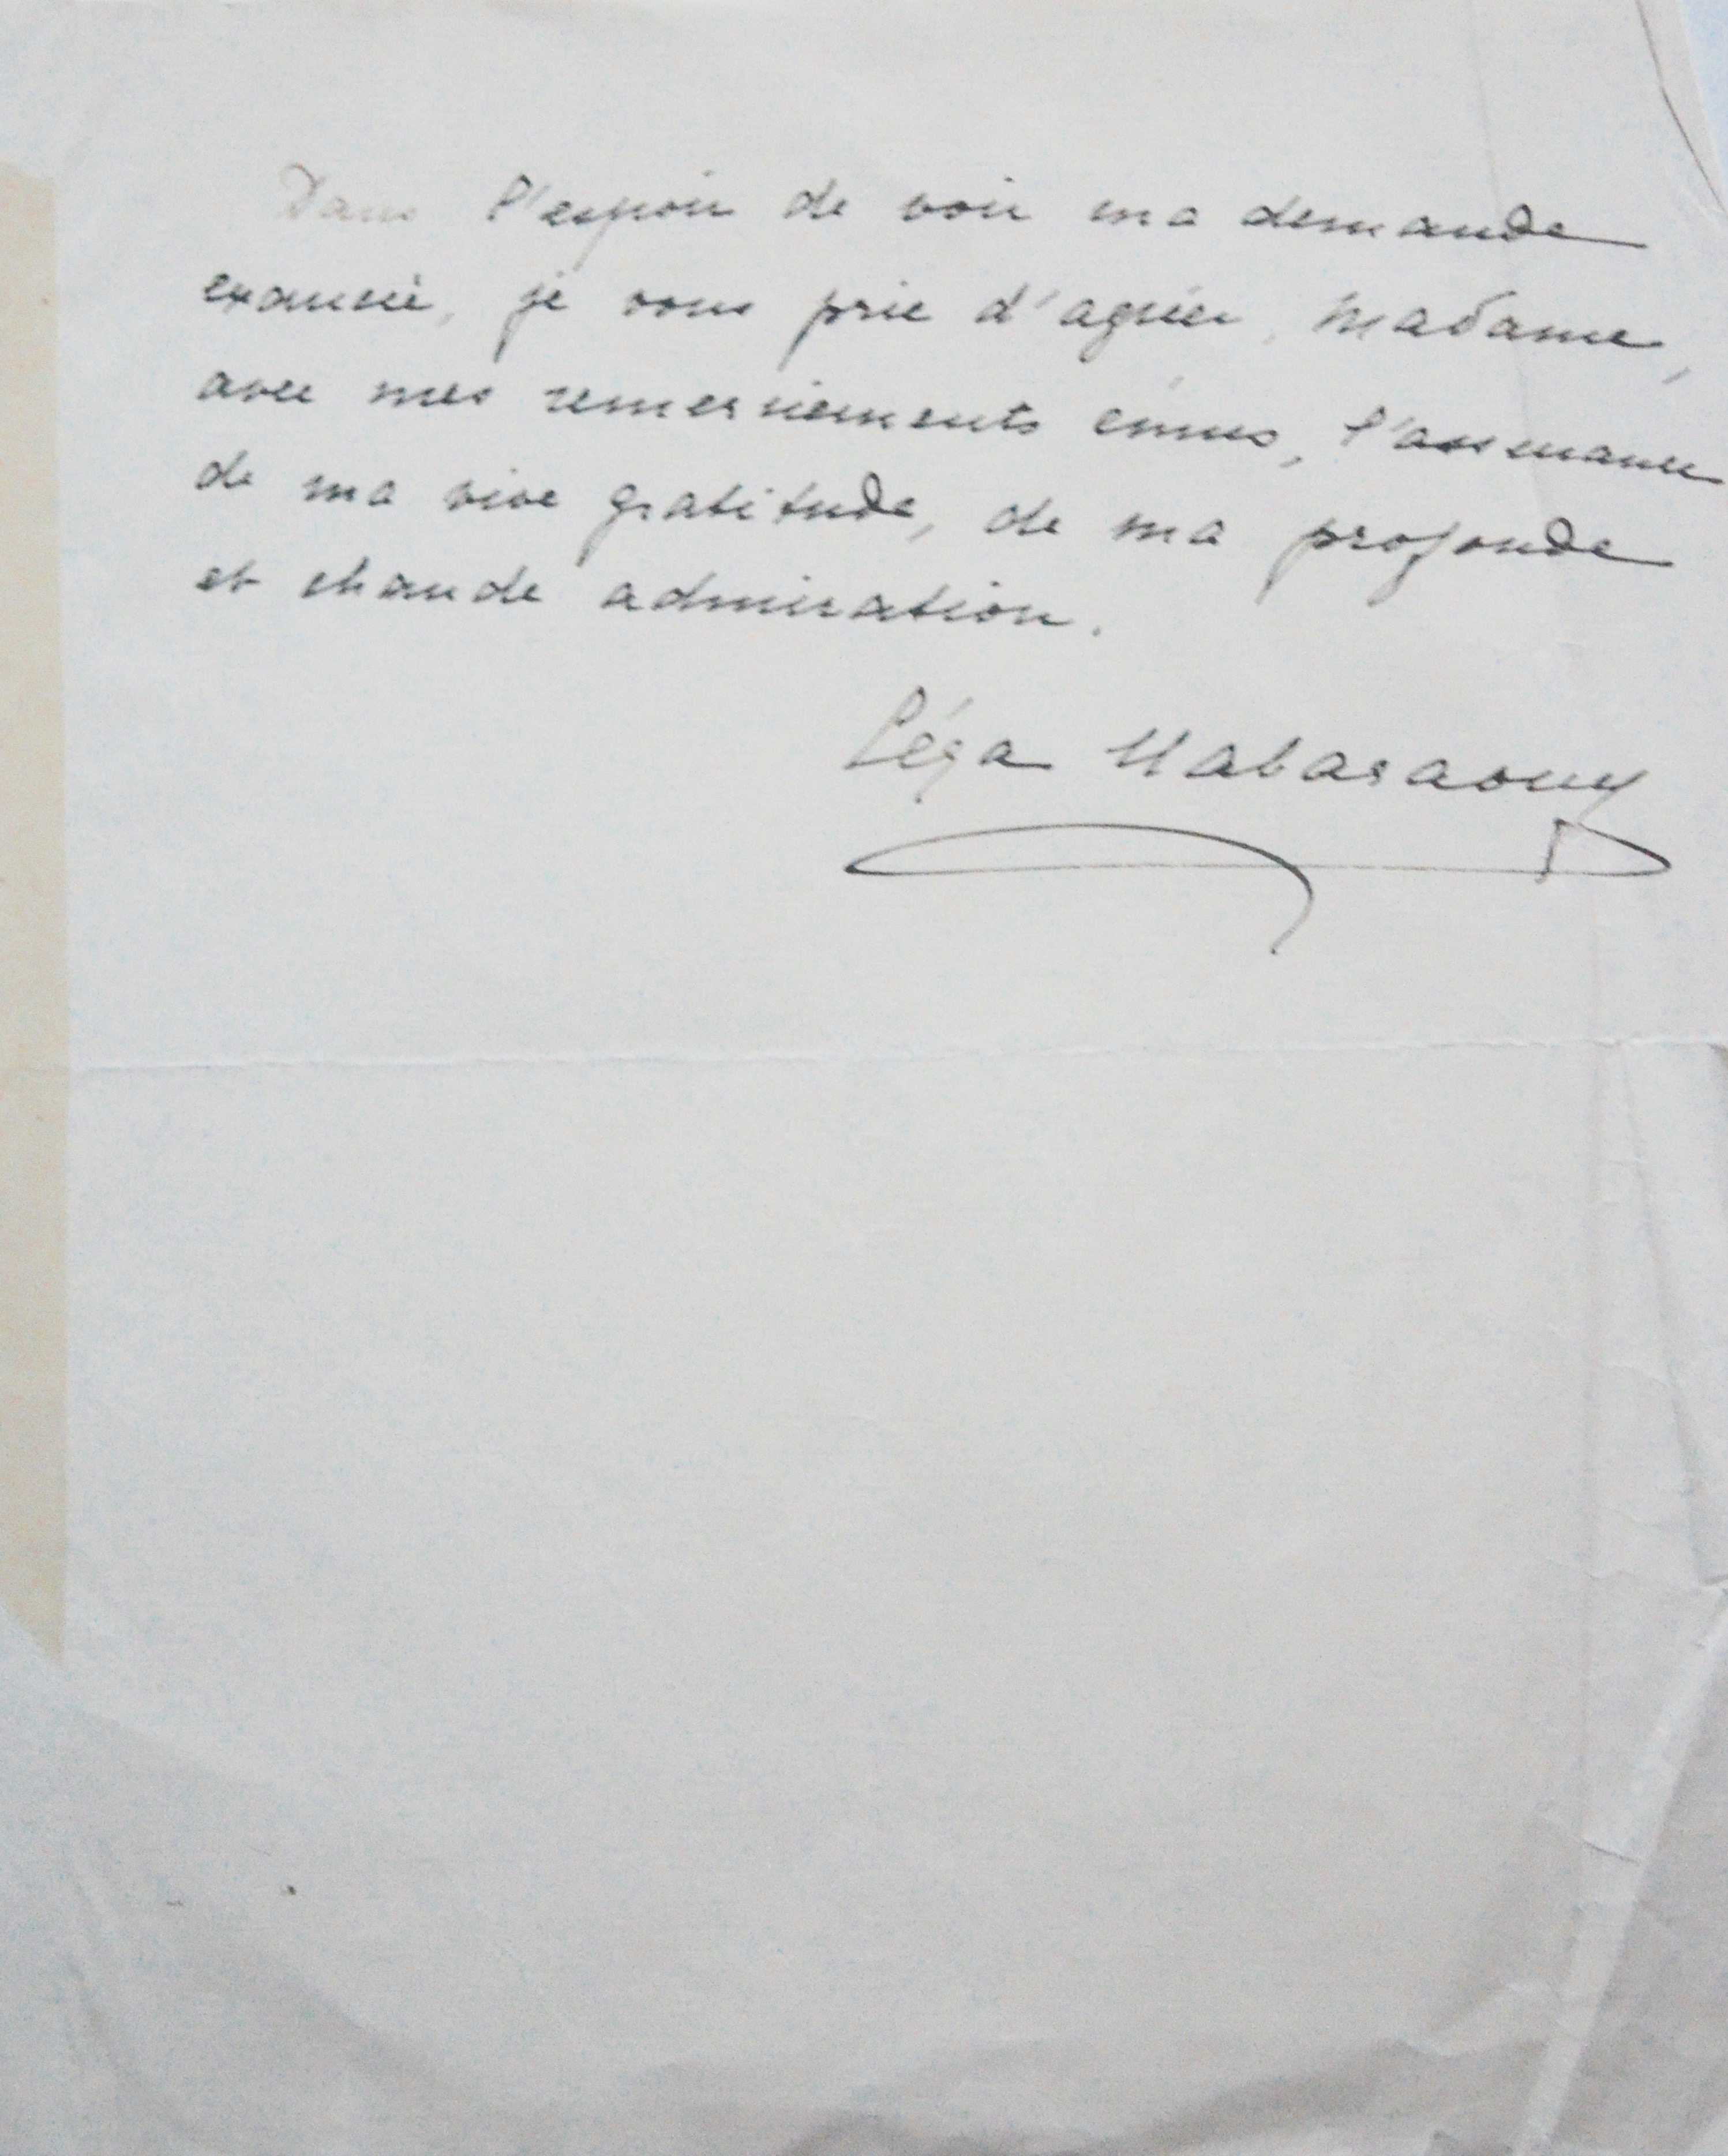 Dans l'espoir de voir ma demande
exaucée, je vous prie d'agréer, Madame,
avec mes remerciements émus, l'assurance
de ma vive gratitude, de ma profonde
et chaude admiration.